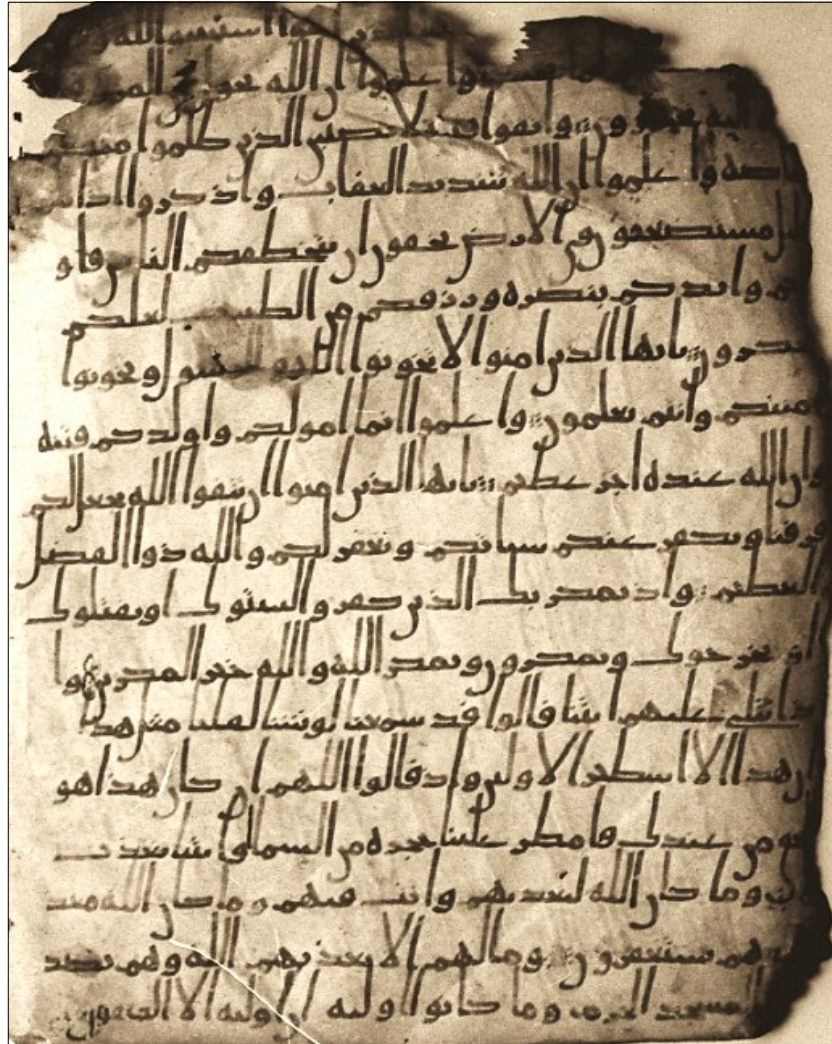 استجيبوا لله
واعلموا ان الله يحول بين المر
اليه تحشرون واتقوا فتنة لا تصيبن الذين ظلموا منكم
خاصة واعلموا ان الله شديد العقاب واذكروا اذ انتم
مستضعفون في الارض تخافون ان يتخطفكم الناس فاو
كم وايدكم بنصره ورزقكم من الطيبت لعلكم
تشكرون يايها الذين امنوا لا تخونوا الله والرسول وتخونوا
امنتكم وانتم تعلمون واعلموا انما امولكم واولدكم فتنة
وان الله عنده اجر عظيم يايها الذين امنوا ان تتقوا الله يجعل لكم
فرقنا ويكفر عنكم سياتكم ويغفر لكم والله ذوا الفضل
العظيم واذ يمكر بك الذين كفروا ليثبتوك او يقتلوك
او يخرجوك ويمكرون ويمكر الله والله خير المكرين وا
ذا تتلى عليهم ايتنا قالوا قد سمعنا لو نشا لقلنا مثل هذا
ان هذا الا اسطير الاولين واذ قالوا اللهم ان كان هذا هو
الحق من عندك فامطر علينا حجرة من السما او ايتنا بعذب
اليم وما كان الله ليعذبهم وانت فيهم وما كان الله معذ
بهم وهم يستغفرون وما لهم الا يعذبهم الله وهم يصد
المسجد الحرم وما كانوا اوليه ان اوليه الا المتقون